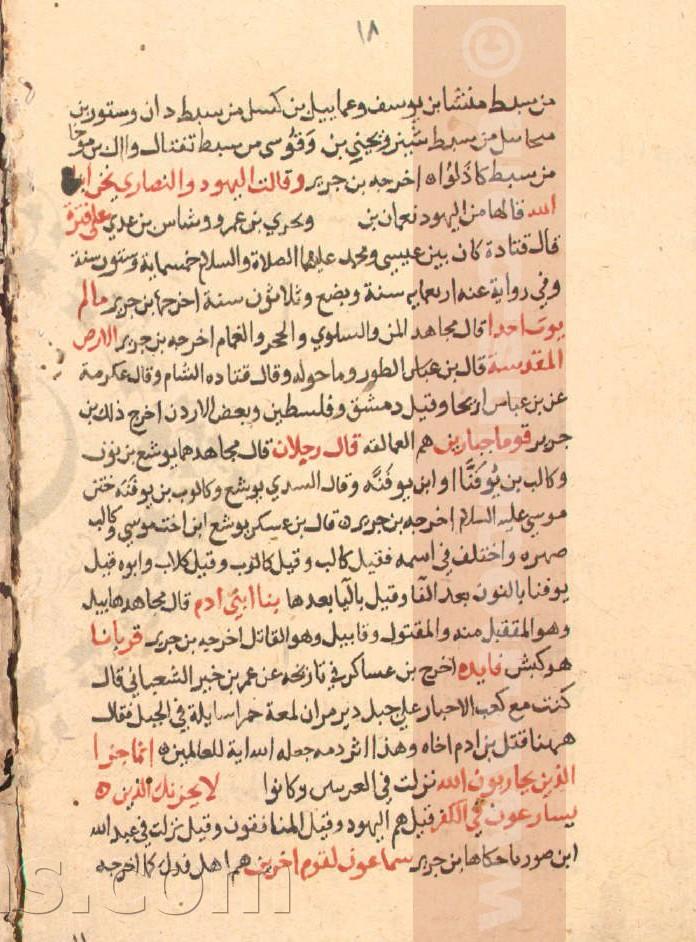 ١٨
من سبط منشا بن يوسف وعماييل بن كسل من سبط دان وستور بن
ميخاسل من سبط شيز ويحيي بن وقوسي من سبط تفتال واال بن موخا
من سبط كاذلوا اخرجه بن جرير وقالت اليهود والنصاري نحن ابنا
الله قالها من اليهود نعمان بن وبحري بن عمرو وشاس بن عدي علي فترة
قال قتادة كان بين عيسي ومحمد عليهما الصلاة والسلام خمسماية وستون سنة
وفي رواية عنه اربعمايه سنة وبضع وثلاثون سنة اخرجها بن جرير مالم
يوت احدا قال مجاهد المن والسلوي والحجر والغمام اخرجه بن جرير الارض
المقدسة قال بن عباس الطور وما حوله وقال قتاده الشام وقال عكرمة
عن بن عباس اريحا وقيل دمشق وفلسطين وبعض الاردن اخرج ذلك بن
جرير قوما جبارين هم العمالقه قال رجلان قال مجاهد هما يوشع بن نون
وكالب بن يُوفَنّا او ابن يوفنَّه وقال السدي يوشع وكالوب بن يوفنه ختن
موسي عليه السلام اخرجه بن جرير قال بن عسكر يوشع ابن اخت موسي وكالب
صهره واختلف في اسمه فقيل كالب وقيل كالوب وقيل كلاب وابوه قيل
يوفنا بالنون بعد الفا وقيل باليا بعدها بنا ابني ادم قال مجاهد هابيل
وهو المتقبل منه والمقتول وقابيل وهو القاتل اخرجه بن جرير قربانا
هو كبش فايده اخرج بن عساكر في تاريخه عن عمر بن خبير الشعباني قال
كنت مع كعب الاحبار علي جبل دير مران لمعة حمرا سايلة في الجبل فقال
ههنا قتل بن ادم اخاه وهذا اثر دمه جعله الله اية للعالمين انما جزا
الذين يحاربون الله نزلت في العرنيين وكانوا لا يحزنك الذين
يسارعون في الكفر قيل هم اليهود وقيل المنافقون وقيل نزلت في عبد الله
ابن صوريا حكاها بن جرير سماعون لقوم اخرين هم اهل فدك كما اخرجه
ns.com